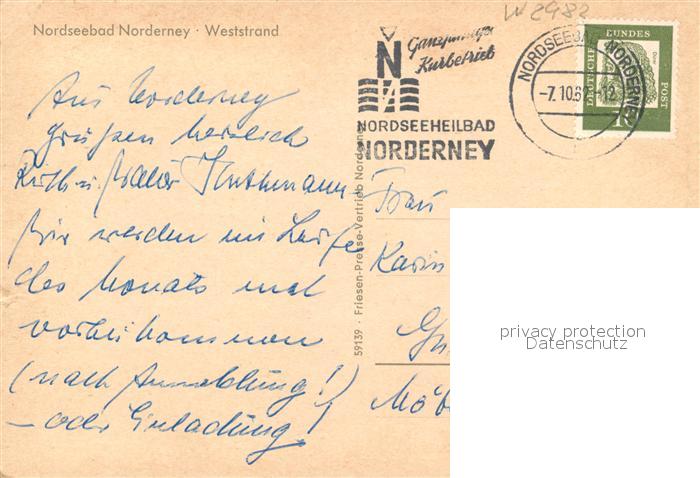 W 2982
Nordseebad Norderney · Weststrand
Ganzjähriger
Kurbetrieb
N
NORDSEEHEILBAD
NORDERNEY
NORDSEEBAD NORDERNEY
-7.10.62-12
DEUTSCHE BUNDESPOST
Dürer
10
Aus Norderney
grüßen herzlich
Ruth u.
Wir werden im Laufe
des Monats mal
vorbeikommen
(nach Anmeldung!)
– oder Einladung!
59139 · Friesen-Presse-Vertrieb Norderney
Frau
Karin
privacy protection
Datenschutz